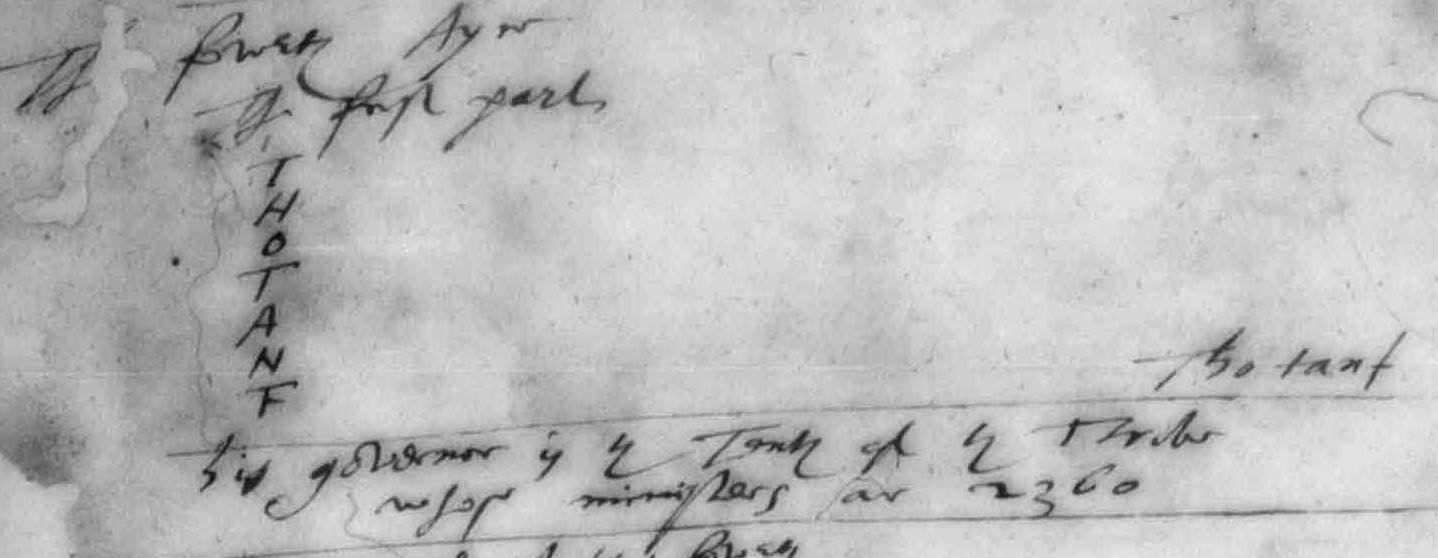 The fowrth Ayre
The first part
T
H
O
T
A
N
F
thotanf
his governor is the Tenth of the Thribe
whose ministers ar 2360
fowrth